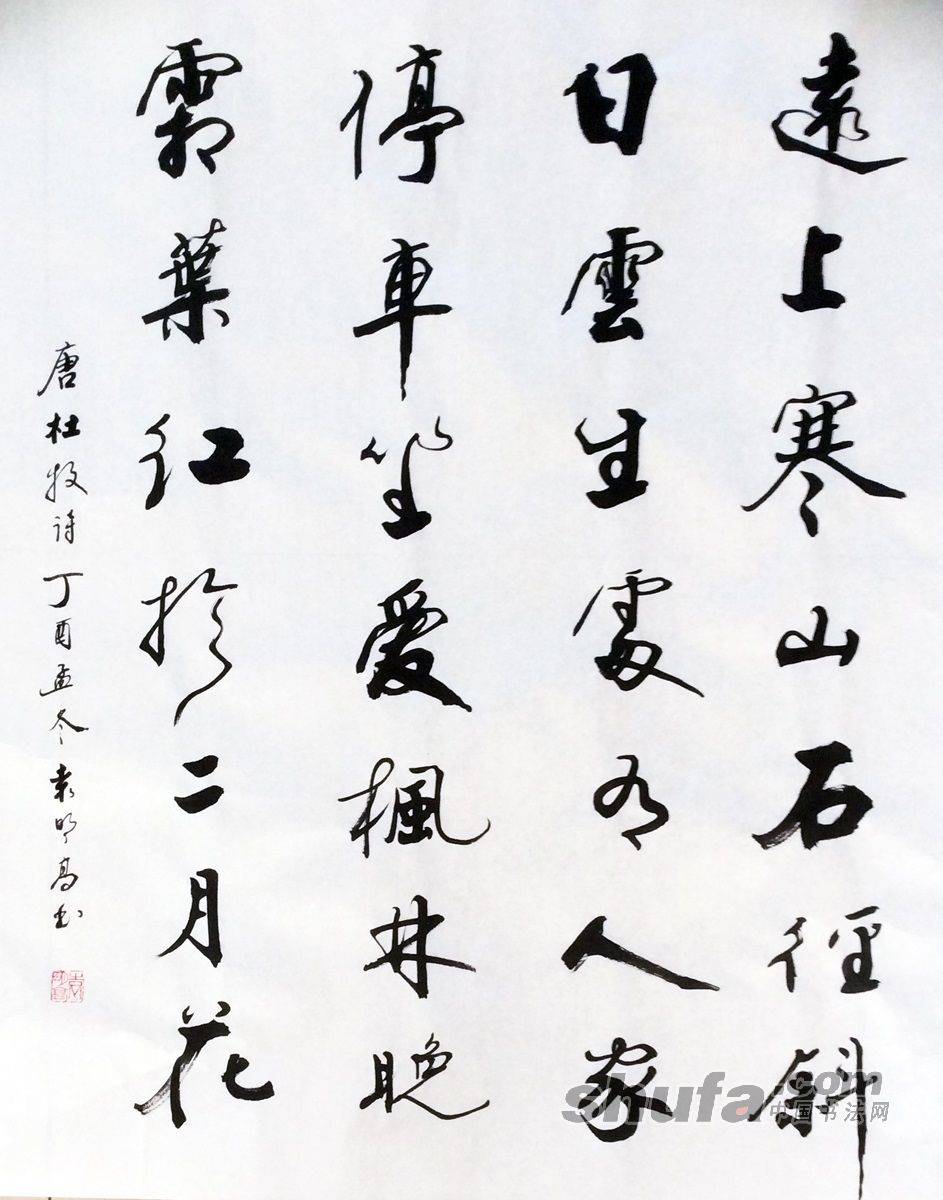 遠上寒山石徑斜
白雲生處有人家
停車坐愛楓林晚
霜葉紅於二月花
唐杜牧詩丁酉孟冬袁明高书
shufa.com
中国书法网